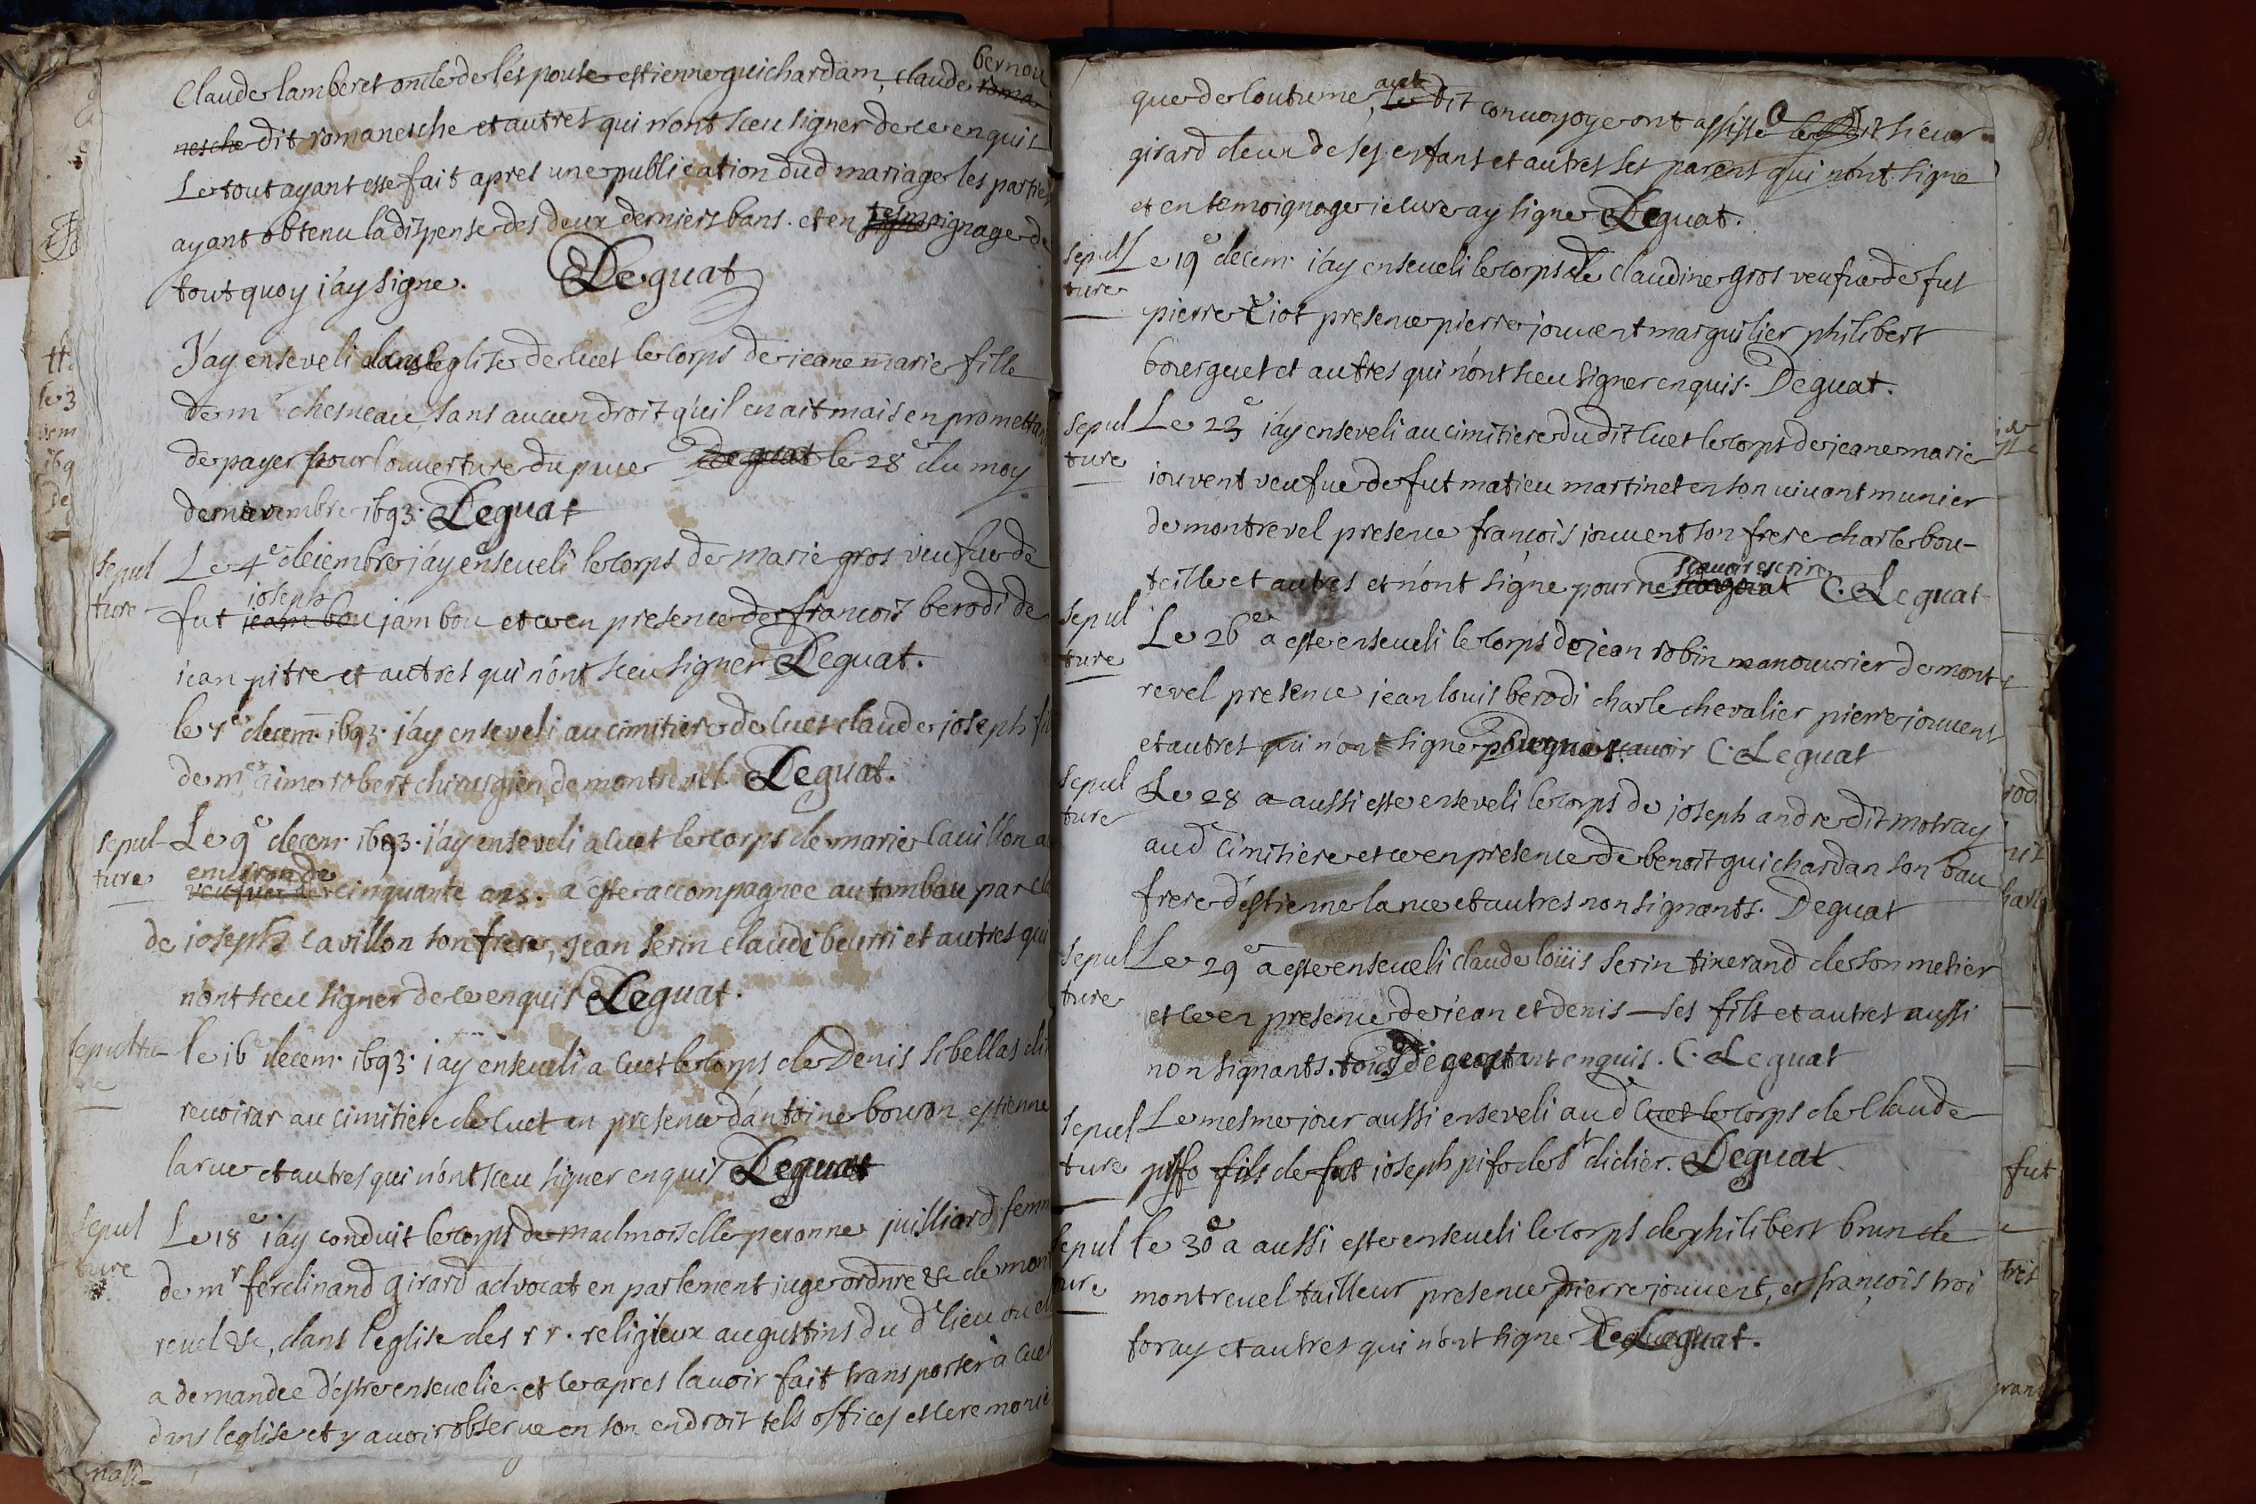 bernou
Claude lamberet oncle de les pouse estienne guichardam, claude roma
nesche dit romanesche et autres qui n'ont sceu signer de ce enquis
Le tout ayant esse fait apres une publication dud mariage les partie
ayant obtenu la dispense des deux derniers bans. et en tesmoignage de
tout quoy j'ay signe. Deguat
J'ay enseveli dans leglise de cuet le corps de jeane marie fille
de mr chesneau sans aucun droit qu'il en ait mais en promettan
de payer pour louverture du Deguat le 28e du moy
de novembre 1693. Deguat
sepul
ture
Le 4e decembre j'ay enseveli le corps de marie gros veufve de
joseph
fut jean bou jambou et ce en presence de francois berodi de
jean pitre et autres qui n'ont sceu signer Deguat.
le 7e decem. 1693. j'ay enseveli au cimitiere de cuet claude joseph fil
de mre aime robert chirurgien de montrevel. Deguat.
sepul
ture
Le 9e decem. 1693. j'ay enseveli a cuet le corps de marie cavillon a
environ de
veufve de cinquante ans. a este accompagnee au tombau par cla
de joseph cavillon son frere, jean serin claude beurri et autres qui
n'ont sceu signer de ce enquis Deguat.
sepultu
re
le 16e decem. 1693. j'ay enseveli a cuet le corps de Denis sebellas dit
revoirar au cimitiere de cuet en presence d'antoine bouron estienne
larue et autres qui n'ont sceu signer enquis Deguat
sepul
ture
Le 18e j'ay conduit le corps de madmoiselle peronne juilliard femm
de mr ferdinand girard advocat en parlement juge ordnre &c de mont
revel &c, dans l'eglise des rr. religieux augustins du d lieu ou ell
a demandee d'estre ensevelie. et ce apres lavoir fait transporter à cuet
dans leglise et y avoir observe en son endroit tels offices et ceremonie
que de coutume, auct le dit convoy ont assiste le dit sieur
girard deux de ses enfants et autres ses parens qui n'ont signe
et en temoignage je cure ay signe Deguat.
sepul
ture
Le 19e decem. j'ay enseveli le corps de claudine gros veufve de fut
pierre presence pierre jouvent marguilier philibert
bouerguet et autres qui n'ont sceu signer enquis. Deguat.
sepul
ture
Le 23e j'ay enseveli au cimitiere du dit cuet le corps de jeane marie
jouvent veufve de fut matieu martinet en son vivant munier
de montrevel presence françois jouvent son frere charle bou-
sçavoir escrire
teille et autres et n'ont signe pour ne C. Leguat
sepul
ture
Le 26e a este enseveli le corps de jean robin manouvrier de mont
revel presence jean louis berodi charle chevalier pierre jouvent
et autres qui n'ont signe pour ne sçavoir C. Leguat
sepul
ture
Le 28 a aussi este enseveli le corps de joseph andre dit motray
aud cimitiere et ce en presence de benoit guichardan son bau
frere d'estienne larue et autres non signants. Deguat
sepul
ture
Le 29e a este enseveli claude loüis serin tixerand de son metier
et ce en presence de jean et denis ses fils et autres aussi
non signants. tous enquis. C. Leguat
sepul
ture
Le mesme jour aussi enseveli aud cuet le corps de claude
pifo fils de fut joseph pifo de st didier. Deguat
sepul
ture
le 30e a aussi este enseveli le corps de philibert brun de
montrevel tailleur presence pierre jouvent, et françois troi
foray et autres qui n'ont signe Deguat.